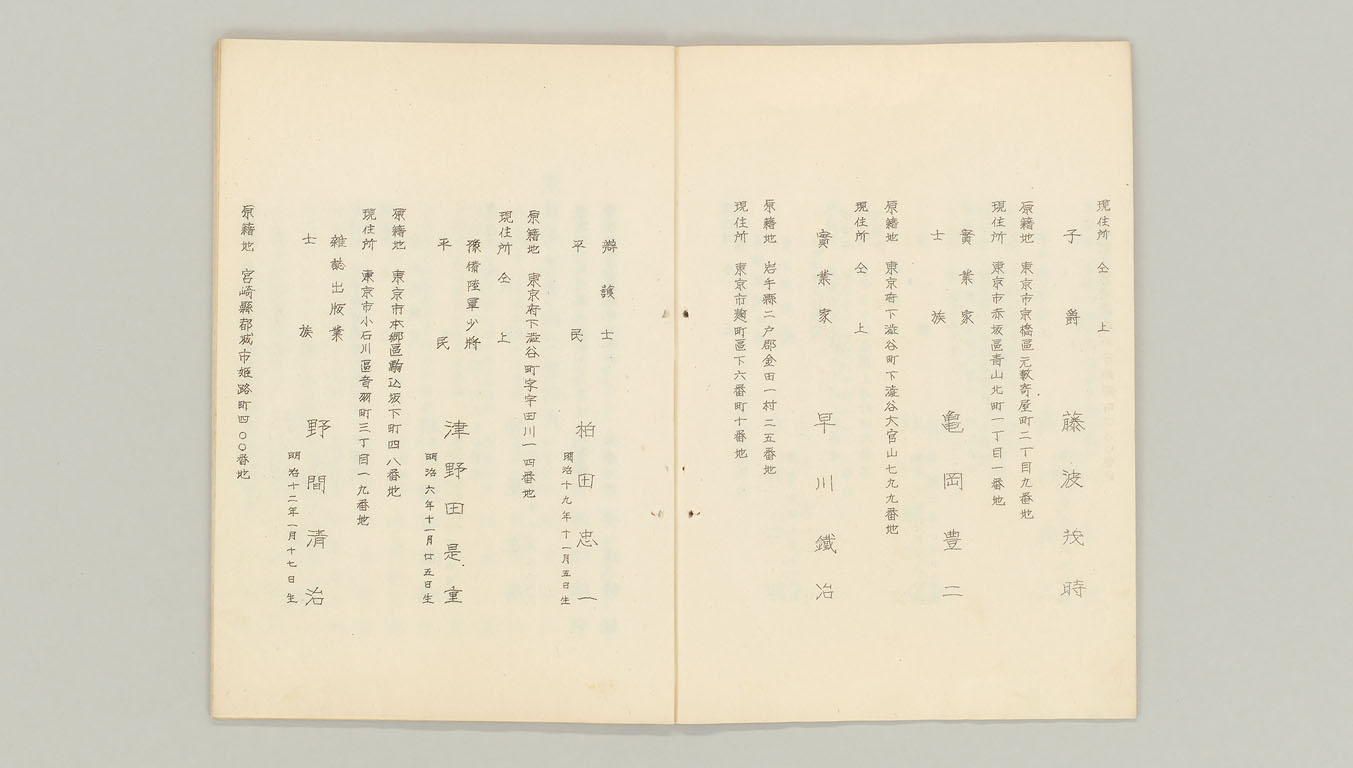 現住所 仝 上
子 爵 藤波茂時
原籍地 東京市京橋區元數寄屋町二丁目九番地
現住所 東京市赤坂區青山北町一丁目一番地
實業家
士 族 亀岡豊二
原籍地 東京府下澁谷町下澁谷大官山七九九番地
現住所 仝 上
實業家 早川鐵冶
原籍地 岩手縣二戸郡金田一村二五番地
現住所 東京市麹町區下六番町十番地
辯護士
平 民 柏田忠一
明治十九年十一月五日生
原籍地 東京府下澁谷町字宇田川一四番地
現住所 仝 上
豫備陸軍少將
平 民 津野田是重
明治六年十一月廿五日生
原籍地 東京市本郷區駒込坂下町四八番地
現住所 東京市小石川區音羽町三丁目一九番地
雜誌出版業
士 族 野間清治
明治十二年一月十七日生
原籍地 宮崎縣都城市姫路町四〇〇番地